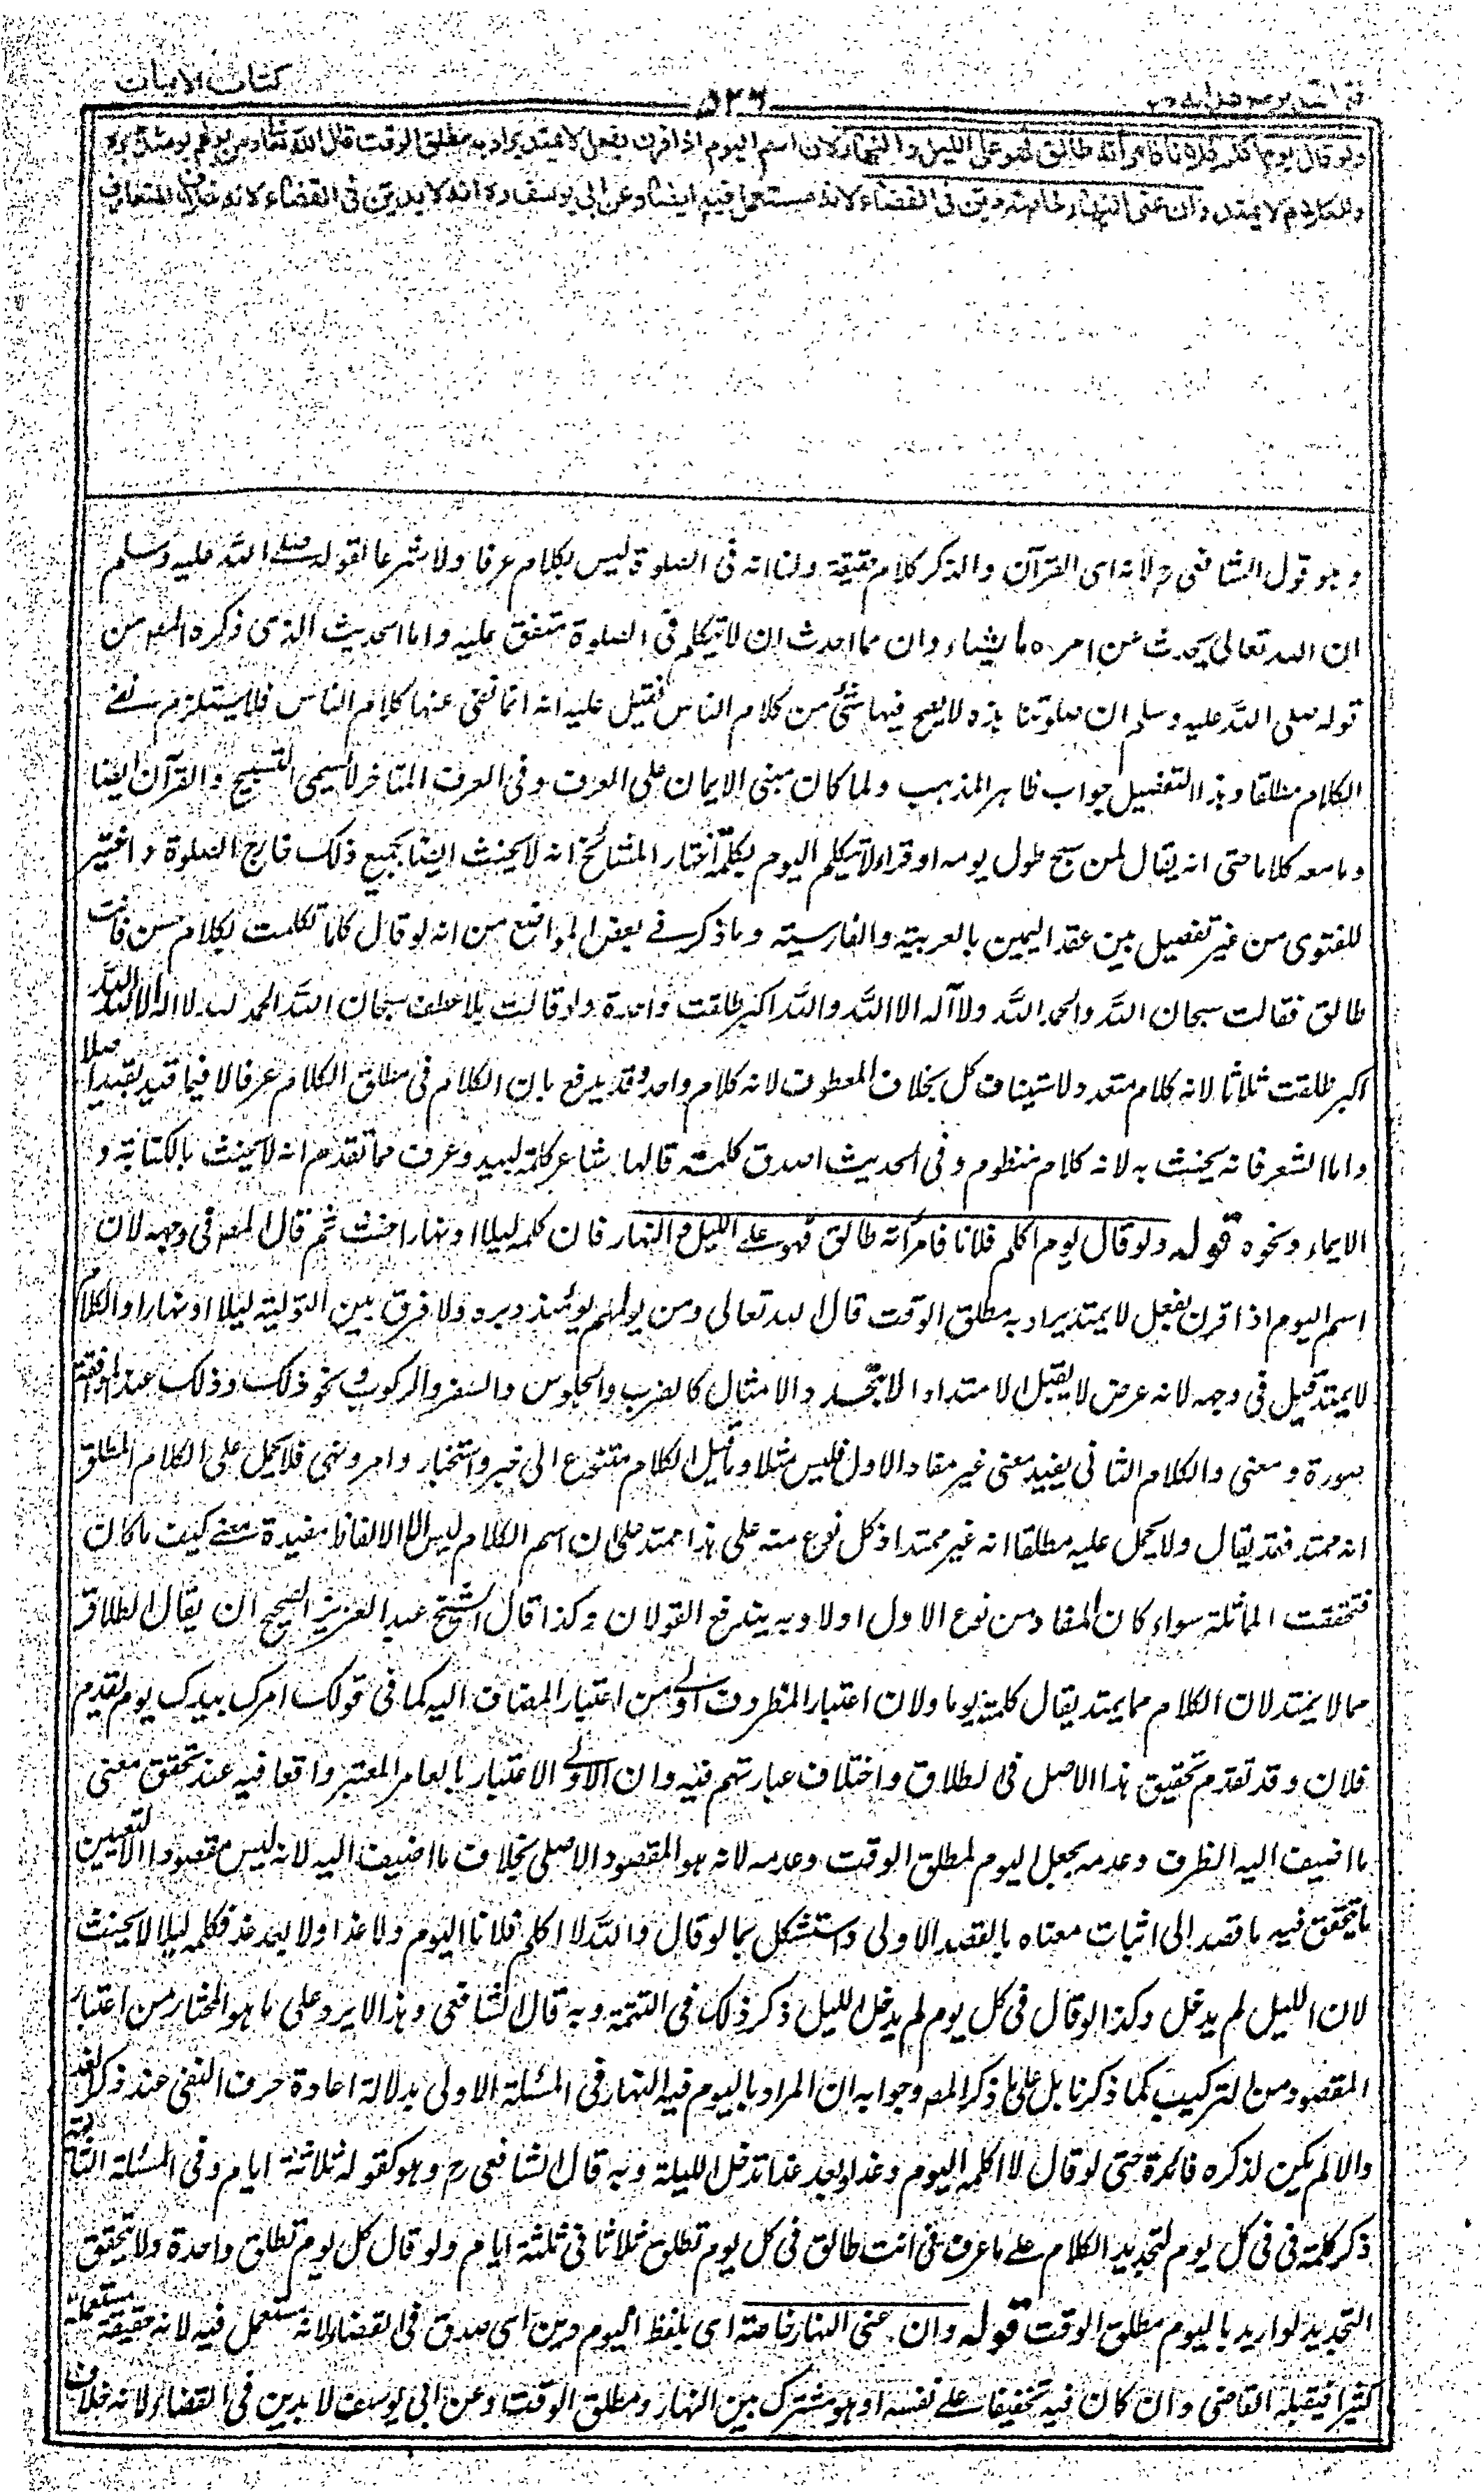 فتح القدير مع هداية جلد ٢
٥٣٦
كتاب الايمان
ولو قال يوم اكلم فلانا فامرأته طالق فهو على الليل والنهار لان اسم اليوم اذا قرن بفعل لا يمتد يراد به مطلق الوقت قال الله تعالى ومن يولهم يومئذ دبره
والكلام لا يمتد وان عنى النهار خاصة دين في القضاء لانه مستعمل فيه ايضا وعن ابي يوسف ره انه لا يدين في القضاء لانه خلاف المتعارف
وهو قول الشافعي رح لانه اى القرآن والذكر كلام حقيقة ولنا انه في الصلوة ليس بكلام عرفا ولا شرعا لقوله صلى الله عليه وسلم
ان الله تعالى يحدث من امره ما يشاء وان مما احدث ان لا يتكلم في الصلوة متفق عليه واما الحديث الذى ذكره المص من
قوله صلى الله عليه وسلم ان صلوتنا هذه لا يصح فيها شئ من كلام الناس فقيل عليه انه انما نفى عنها كلام الناس فلا يستلزم نفى
الكلام مطلقا وهذا التفصيل جواب ظاهر المذهب ولما كان مبنى الايمان على العرف وفى العرف المتاخر لا يسمى التسبيح والقرآن ايضا
وما معه كلاما حتى انه يقال لمن سبح طول يومه او قرأ لا يتكلم اليوم بكلمة اختار المشائخ انه لا يحنث ايضا بجميع ذلك خارج الصلوة واختير
للفتوى من غير تفصيل بين عقد اليمين بالعربية والفارسية وما ذكر فى بعض المواضع من انه لو قال كلما تكلمت بكلام حسن فانت
طالق فقالت سبحان الله والحمد لله ولا اله الا الله والله اكبر طلقت واحدة ولو قالت بلا عطف سبحان الله الحمد لله لا اله الا الله الله
اكبر طلقت ثلاثا لانه كلام متعدد لاستيناف كل بخلاف المعطوف لانه كلام واحد وقد يدفع بان الكلام فى مطلق الكلام عرفا لا فيما قيد بقيد اصلا
واما الشعر فانه يحنث به لانه كلام منظوم وفى الحديث اصدق كلمة قالها شاعر كلمة لبيد وعرف مما تقدم انه لا يحنث بالكتابة و
الايماء ونحوه قوله ولو قال يوم اكلم فلانا فامرأته طالق فهو على الليل والنهار فان كلمه ليلا او نهارا حنث ثم قال المص فى وجهه لان
اسم اليوم اذا قرن بفعل لا يمتد يراد به مطلق الوقت قال الله تعالى ومن يولهم يومئذ دبره ولا فرق بين التولية ليلا او نهارا والكلام
لا يمتد قيل فى وجهه لانه عرض لا يقبل الامتداد الا بتجدد الامثال كالضرب والجلوس والسفر والركوب ونحو ذلك وذلك عند الموافقة
صورة ومعنى والكلام الثانى يفيد معنى غير مفاد الاول فليس مثلا وما قيل الكلام متنوع الى خبر واستخبار وامر ونهى فلا يحمل على الكلام المطلق
انه ممتد فقد يقال ولا يحمل عليه مطلقا انه غير ممتد اذ كل نوع منه على هذا ممتد على ان اسم الكلام ليس الا لالفاظ مفيدة معنى كيف ما كان
فتحققت المماثلة سواء كان المفاد من نوع الاول اولا وبه يندفع القولان وكذا قال الشيخ عبد العزيز الصحيح ان يقال الطلاق
مما لا يمتد لان الكلام مما يمتد يقال كلمته يوما ولان اعتبار المظروف اولى من اعتبار المضاف اليه كما فى قولك امرك بيدك يوم يقدم
فلان وقد تقدم تحقيق هذا الاصل فى الطلاق واختلاف عبارتهم فيه وان الاولى الاعتبار بالعامل المعتبر واقعا فيه عند تحقق معنى
ما اضيف اليه الظرف وعدمه بجعل اليوم لمطلق الوقت وعدمه لانه هو المقصود الاصلى بخلاف ما اضيف اليه لانه ليس مقصودا الا لتعيين
ما يتحقق فيه ما قصد الى اثبات معناه بالقصد الاولى واستشكل بما لو قال والله لا اكلم فلانا اليوم ولا غدا ولا بعد غد فكلمه ليلا لا يحنث
لان الليل لم يدخل وكذا لو قال فى كل يوم لم يدخل الليل ذكر ذلك فى التتمة وبه قال الشافعى وهذا لا يرد على ما هو المختار من اعتبار
المقصود من التركيب كما ذكرنا بل على ما ذكر المص وجوابه ان المراد باليوم فيه النهار فى المسئلة الاولى بدلالة اعادة حرف النفى عند ذكر الغد
والا لم يكن لذكره فائدة حتى لو قال لا اكلمه اليوم وغدا وبعد غد تدخل الليلة وبه قال الشافعى رح وهو كقوله ثلاثة ايام وفى المسئلة الثانية
ذكر كلمة فى فى كل يوم لتجديد الكلام على ما عرف فى انت طالق فى كل يوم تطلق ثلاثا فى ثلثة ايام ولو قال كل يوم تطلق واحدة ولا يتحقق
التجديد لو اريد باليوم مطلق الوقت قوله وان عنى النهار خاصة اى بلفظ اليوم دين اى صدق فى القضاء لانه مستعمل فيه لانه حقيقة مستعملة
كثيرا فيقبله القاضى وان كان فيه تخفيفا على نفسه او هو مشترك بين النهار ومطلق الوقت وعن ابى يوسف لا يدين فى القضاء لانه خلاف